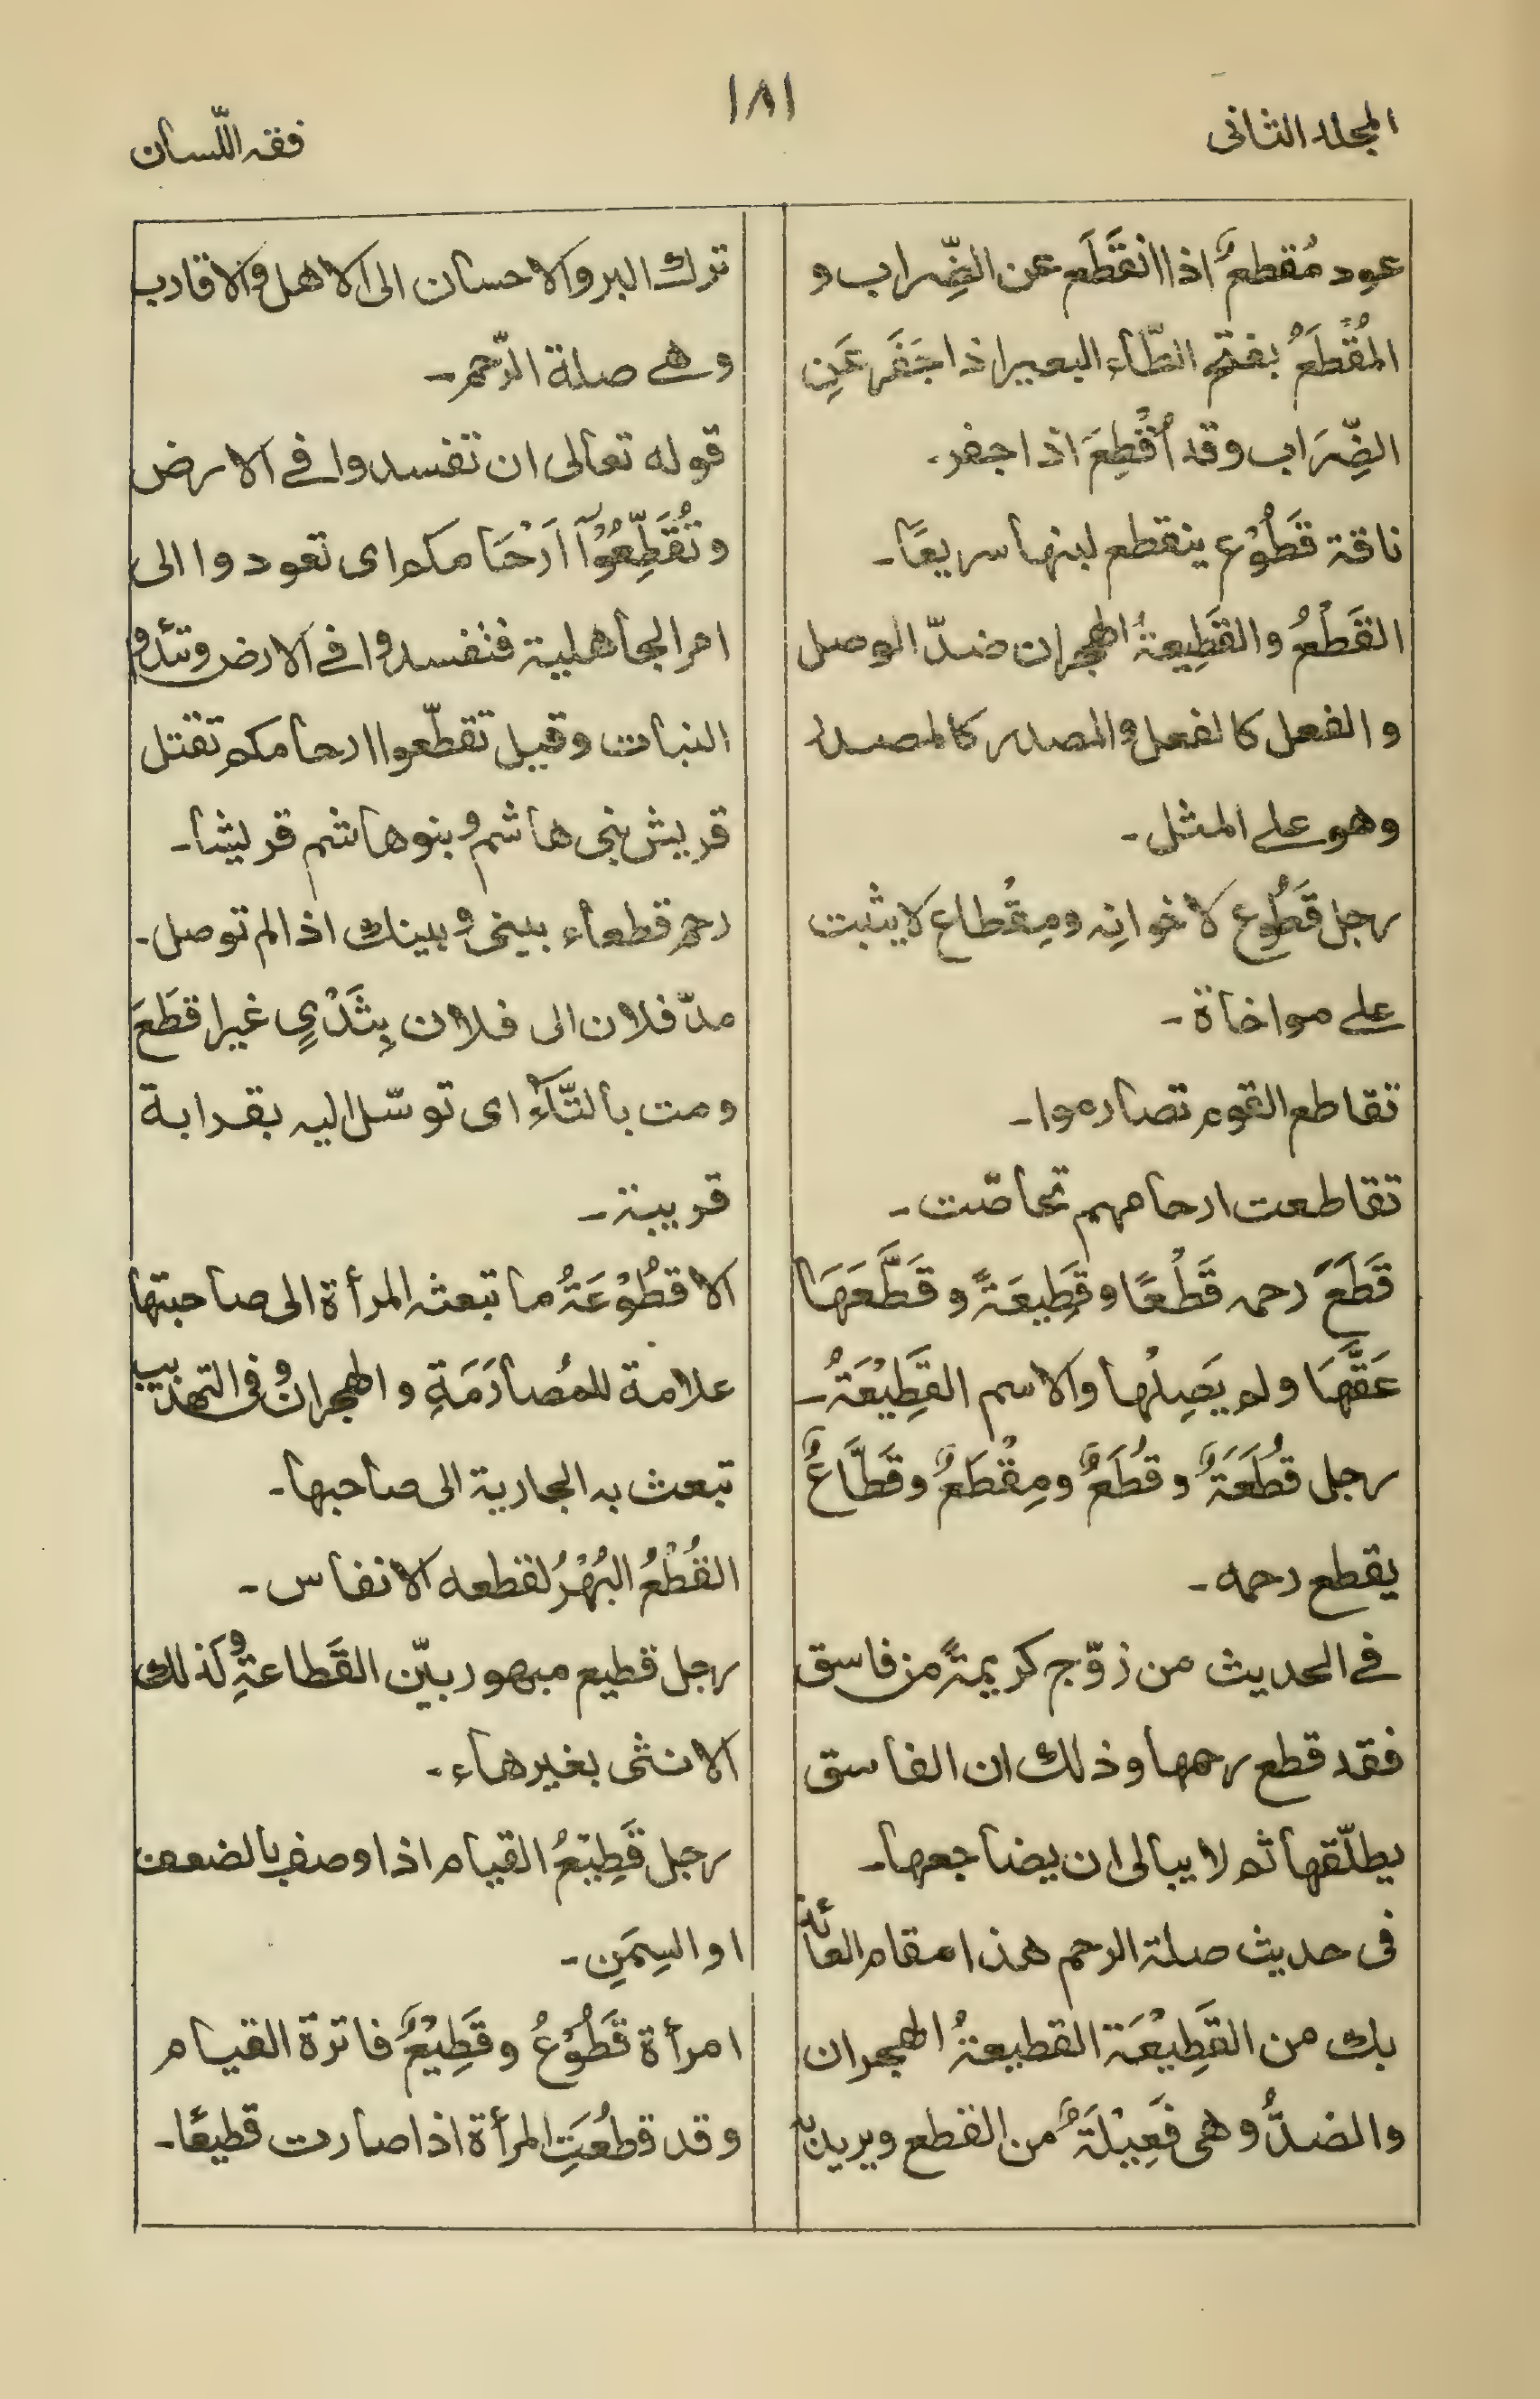 ١٨١
المجلد الثانی
فقه اللّسان
عود مُقطعٌ اذا انقَطَع عن الضِّراب و
المُقْطَعُ بفتح الطّاء البعير اذا جَفَر عَنِ
الضِّرَاب وقد اُقْطِعَ اذا جفر۔
ناقة قَطُوْع ينقطع لبنها سريعًا۔
القَطْعُ والقَطِيعةُ الهجران ضدّ الوصل
والفعل كالفعل والمصدر كالمصدر
وهو علے المثل۔
رجل قَطُوع لاخوانِه ومِقْطاع لا يثبت
علے مواخاة۔
تقاطع القوم تصارموا۔
تقاطعت ارحامهم تحاصّت۔
قَطَعَ رحمه قَطْعًا وقَطِيعَةً وقَطَّعَهَا
عَقَّهَا ولم يَصِلْها والاسم القَطِيْعَةُ۔
رجل قُطَعَةٌ وقُطَعٌ ومِقْطَعٌ وقَطَّاعٌ
يقطع رحمه۔
فے الحديث من زوّج كريمةً من فاسق
فقد قطع رحمها وذلك ان الفاسق
يطلّقها ثم لا يبالی ان يضاجعها۔
فی حديث صلة الرحم هذا مقام العائذ
بك من القَطِيْعَة القطيعةُ الهجران
والضدُّ وهی فَعِيْلَةٌ من القطع ويريد به
ترك البر والاحسان الی الاهل والاقارب
وهے صلة الرّحم۔
قوله تعالی ان تفسدوا فے الارض
وتُقَطِّعُوْٓا اَرْحَامكم ای تعودوا الی
امر الجاهلية فتفسدوا فے الارض وتئدوا
البنات وقيل تقطّعوا ارحامكم تقتل
قريش بنی هاشم وبنو هاشم قريشا۔
رحم قطعاء بينی وبينك اذا لم توصل۔
مدّ فلان الی فلان بِثَدْيٍ غير اقطَعَ
ومت بالتّاءِ ای توسّل اليه بقرابة
قريبة۔
الاقطُوْعَةُ ما تبعثه المرأة الی صاحبتها
علامة للمُصارَمَةِ والهجران وفی التهذيب
تبعث به الجارية الی صاحبها۔
القُطْعُ البُهْرُ لقطعه الانفاس۔
رجل قطيع مبهور بيّن القَطاعةِ وكذلك
الانثی بغير هاء۔
رجل قَطِيْعُ القيام اذا وصف بالضعف
او السِمَنِ۔
امرأة قَطُوْعُ وقَطِيْعٌ فاترة القيام
وقد قطُعَتِ المرأة اذا صارت قطيعًا۔